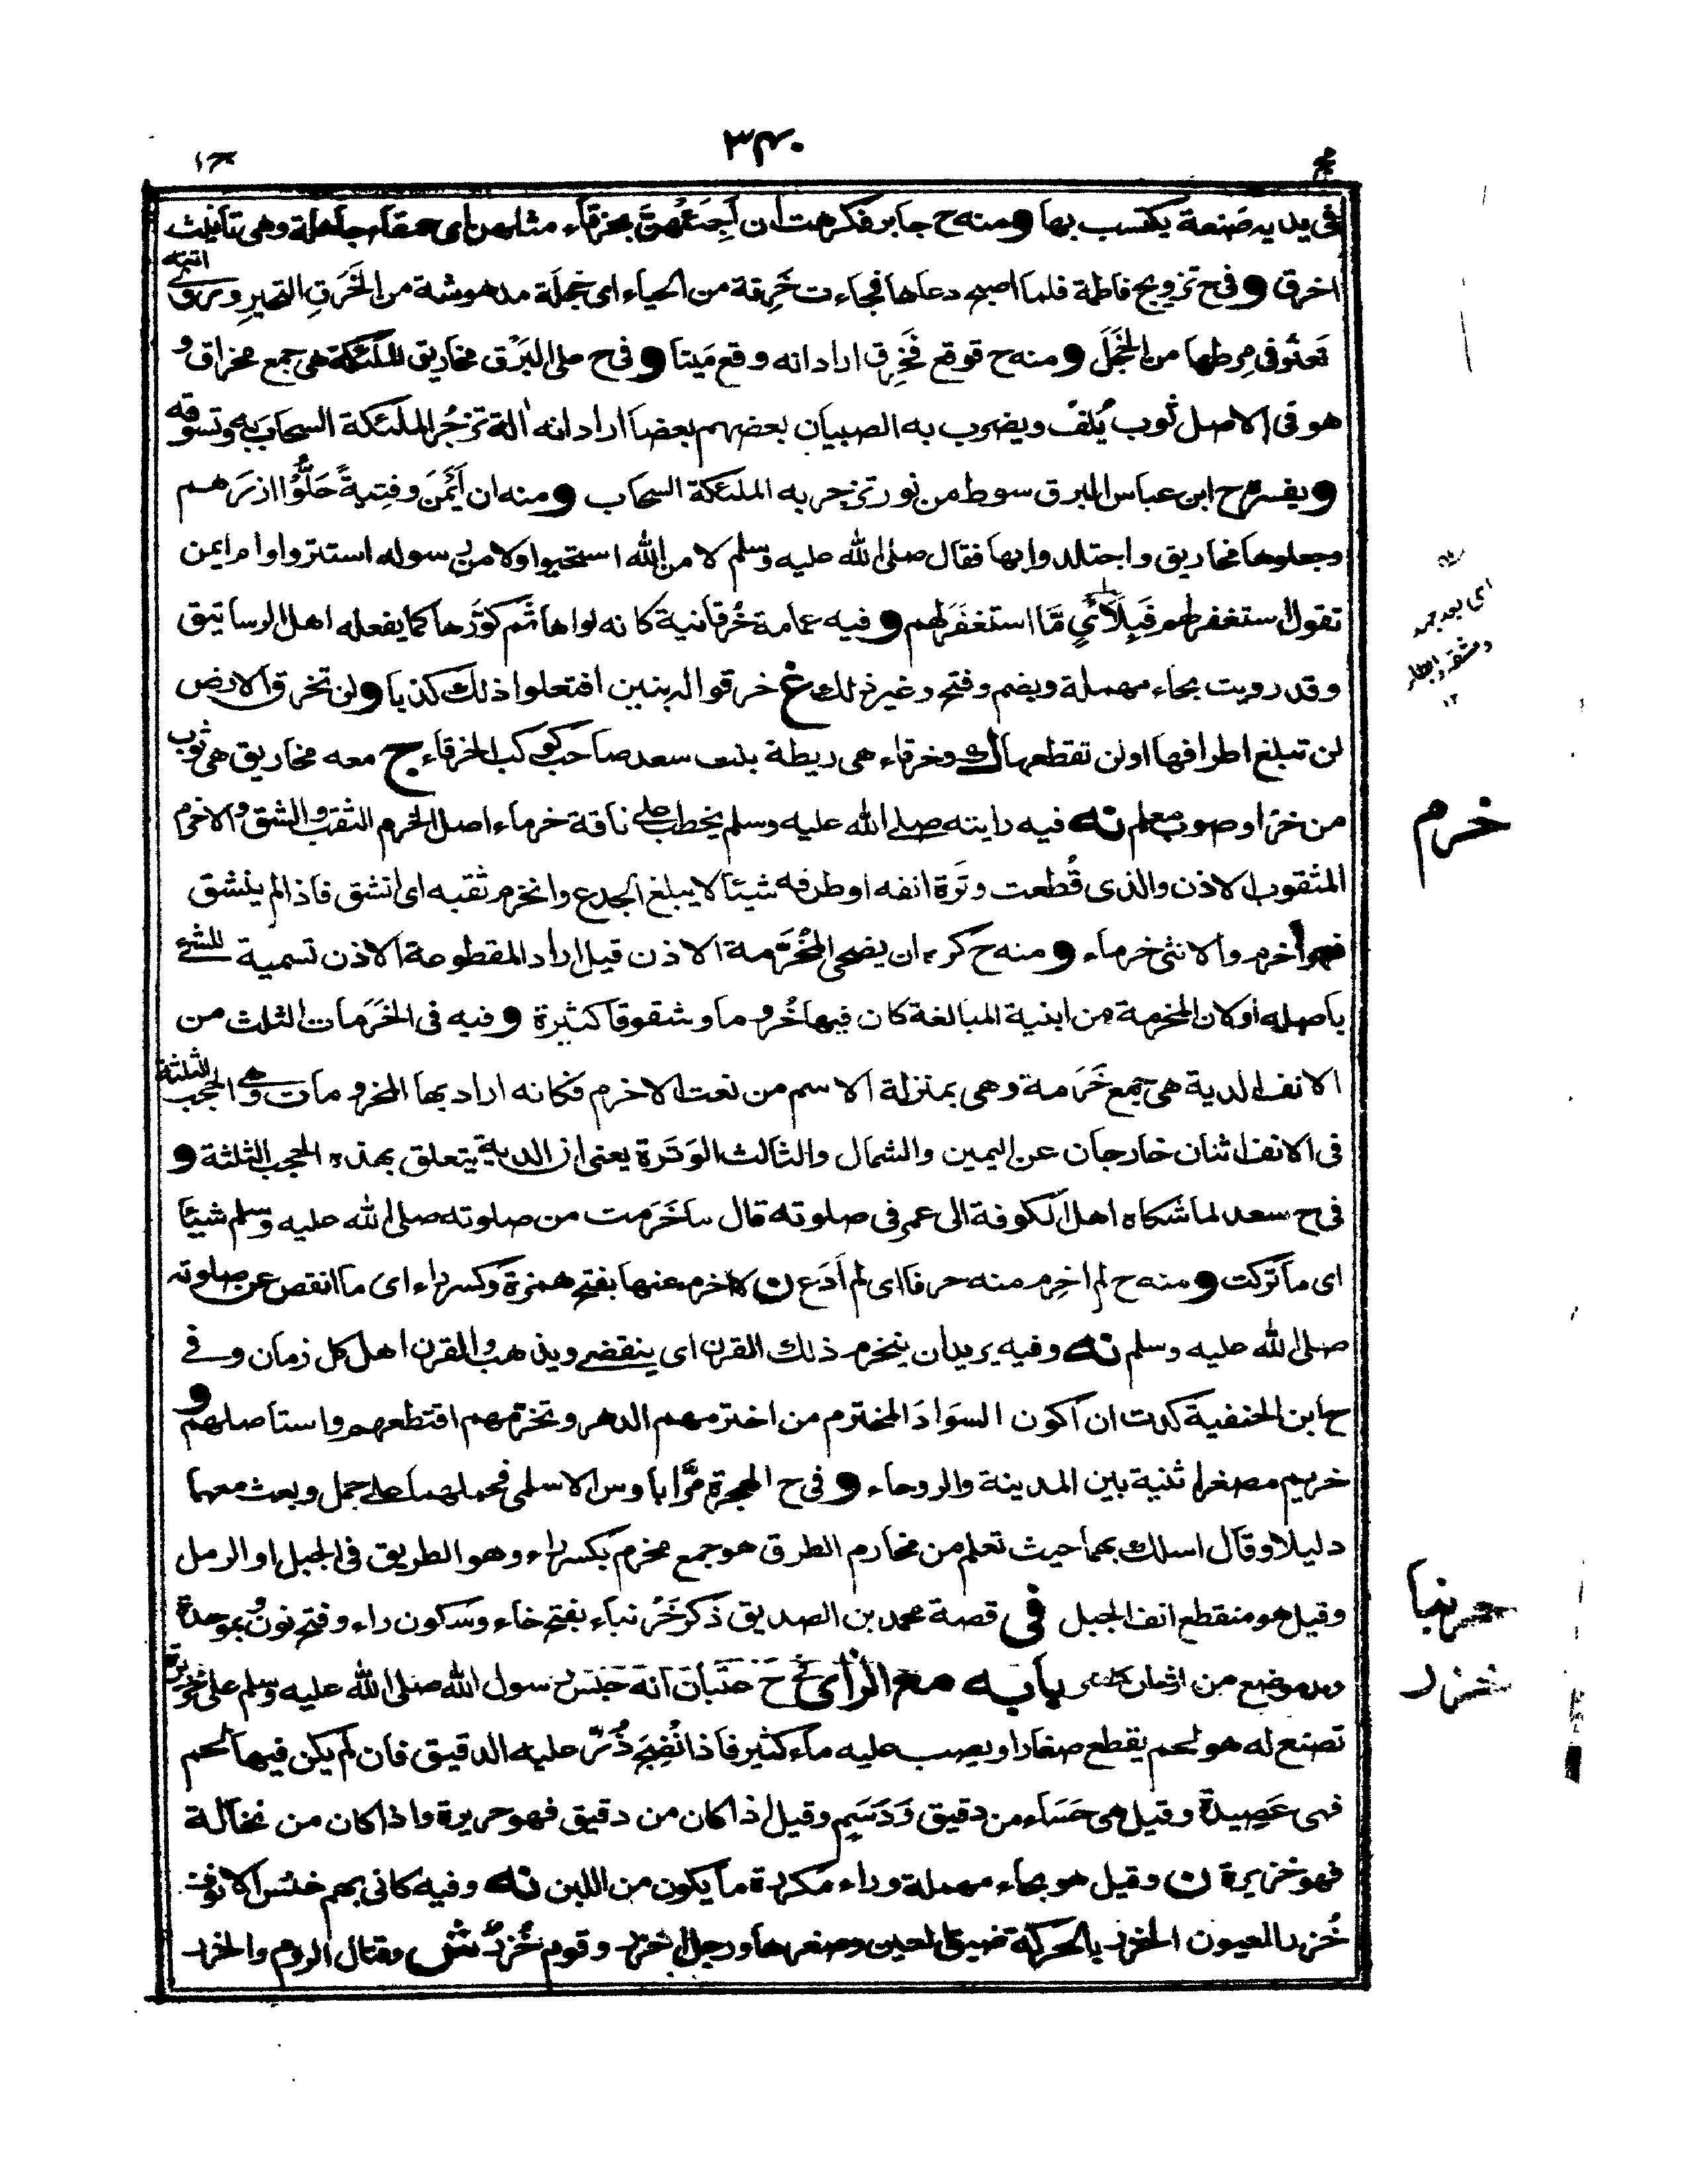 ٣٤٠
فى يديه صَنعة يكتسب بها ومنه ح جابر فكرهت ان اَجِئَهُنَّ بخرقاء مثلهن اى حمقاء جاهلة وهى تأنيث
اخرق وفى ح تزويج فاطمة فلما اصبح دعاها فجاءت خَرِقة من الحياء اى خجلة مدهوشة من الخَرَق التحير وروى اتته
تَعثُو فى مِرطها من الخَجَل ومنه ح فوقع فَخَرِق اراد انه وقع مَيتا وفى ح على البَرْق مخاريق الملئكة هى جمع مخراق و
هو فى الاصل ثوب يُلَفّ ويضرب به الصبيان بعضهم بعضا اراد انه اٰلة تزجُر الملئكة السحاب به وتسوقه
ويفسره ح ابن عباس البرق سوط من نور تزجر به الملئكة السحاب ومنه ان اَيْمَنَ وفِتيةً حَلُّوا ازرهم
وجعلوها مخاريق واجتلدوا بها فقال صلى الله عليه وسلم لا من الله استحيوا ولا من رسوله استتروا وام ايمن
تقول استغفر لهم فَبِلَأْىٍ مَّا استغفَرَ لهم وفيه عمامة خُرقانية كانه لواها ثم كوّرها كما يفعله اهل الرساتيق
وقد رويت بحاء مهملة وبضم وفتح وغير ذلك غ خرقوا له بنين افتعلوا ذلك كذبا ولن تخرق الارض
لن تبلغ اطرافها او لن تقطعها ك وخرقاء هى ريطة بنت سعد صاحب كوكب الخرقاء ج معه مخاريق هى ثوب
من خز او صوب معلم نه فيه رايته صلى الله عليه وسلم يخطب على ناقة خرماء اصل الخرم الثقب والشق والاخرم
المثقوب الاذن والذى قُطعت وتَرة انفه او طرفه شيئا لا يبلغ الجدع وانخرم ثقبه اى انشق فاذا لم ينشق
فهو اخرم والانثى خرماء ومنه ح كره ان يضحى المُخَرَّمة الاذن قيل اراد المقطوعة الاذن تسمية للشئ
باصله او لان المخرمة من ابنية المبالغة كان فيها خُروما وشقوقا كثيرة وفيه فى الخَرَمات الثلث من
الانف الدية هى جمع خَرَمة وهى بمنزلة الاسم من نعت الاخرم فكانه اراد بها المخرومات وهى الحجب الثلثة
فى الانف اثنان خارجان عن اليمين والشمال والثالث الوَتَرة يعنى ان الدية يتعلق بهذه الحجب الثلثة و
فى ح سعد لما شكاه اهل الكوفة الى عمر فى صلوته قال ما خَرَمت من صلوته صلى الله عليه وسلم شيئا
اى ما تركت ومنه ح لم اخرِم منه حرفا اى لم اَدَع ن لا اخرم عنها بفتح همزة وكسر راء اى ما انقص عن صلوته
صلى الله عليه وسلم نه وفيه يريد ان ينخرم ذلك القرن اى ينقضى ويذهب والقرن اهل كل زمان وفى
ح ابن الحنفية كدت ان اكون السوَادَ المخترم من اخترمهم الدهر وتخرّمهم اقتطعهم واستاصلهم و
خريم مصغرا ثنية بين المدينة والروحاء وفى ح الهجرة مرَّا باوس الاسلمى فحملهما على جمل وبعث معهما
دليلا وقال اسلك بهما حيث تعلم من مخارم الطرق هو جمع مخرم بكسر راء وهو الطريق فى الجبل او الرمل
وقيل هو منقطع انف الجبل فى قصة محمد بن الصديق ذكر خَرْنباء بفتح خاء وسكون راء وفتح نون بموحدة
ومد موضع من ارض مصر بابه مع الزاى خ ح عتبان انه حبس رسول الله صلى الله عليه وسلم على خزيرة
تصنع له هو لحم يقطع صغارا ويصب عليه ماء كثير فاذا نُضِجَ ذُرّ عليه الدقيق فان لم يكن فيها لحم
فهى عَصِيدة وقيل هى حَسَاء من دقيق وَدَسَمٍ وقيل اذا كان من دقيق فهو حريرة واذا كان من نخالة
فهو خزيرة ن وقيل هو بحاء مهملة وراء مكررة ما يكون من اللبن نه وفيه كانى بهم خنس الانوف
خُزر العيون الخزر بالحركة ضيق العين وصغرها ورجل اخزر وقوم خُزر ش وقتال الروم والخزر
خرم
خرنبا
خزر